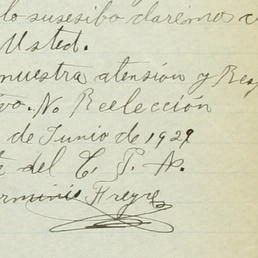 lo susesibo darémos c
Usted.
nuestra atensión y Res
vo. No Reelección
de Junio de 1929
del C. T. A.
erminio Freyre